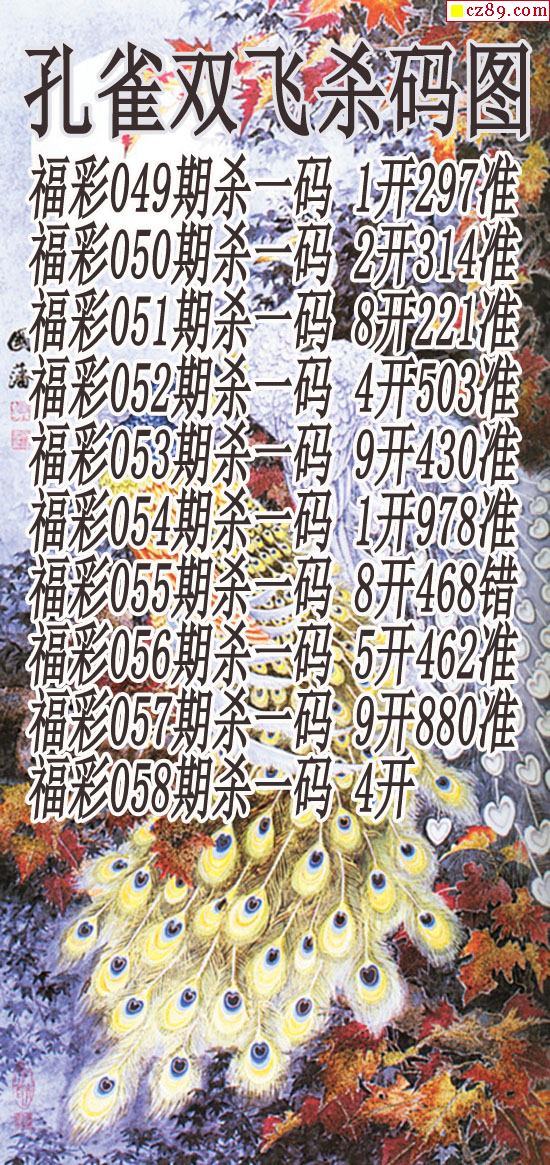 cz89.com
孔雀双飞杀码图
福彩049期杀一码 1开297准
福彩050期杀一码 2开314准
福彩051期杀一码 8开221准
福彩052期杀一码 4开503准
福彩053期杀一码 9开430准
福彩054期杀一码 1开978准
福彩055期杀一码 8开468错
福彩056期杀一码 5开462准
福彩057期杀一码 9开880准
福彩058期杀一码 4开